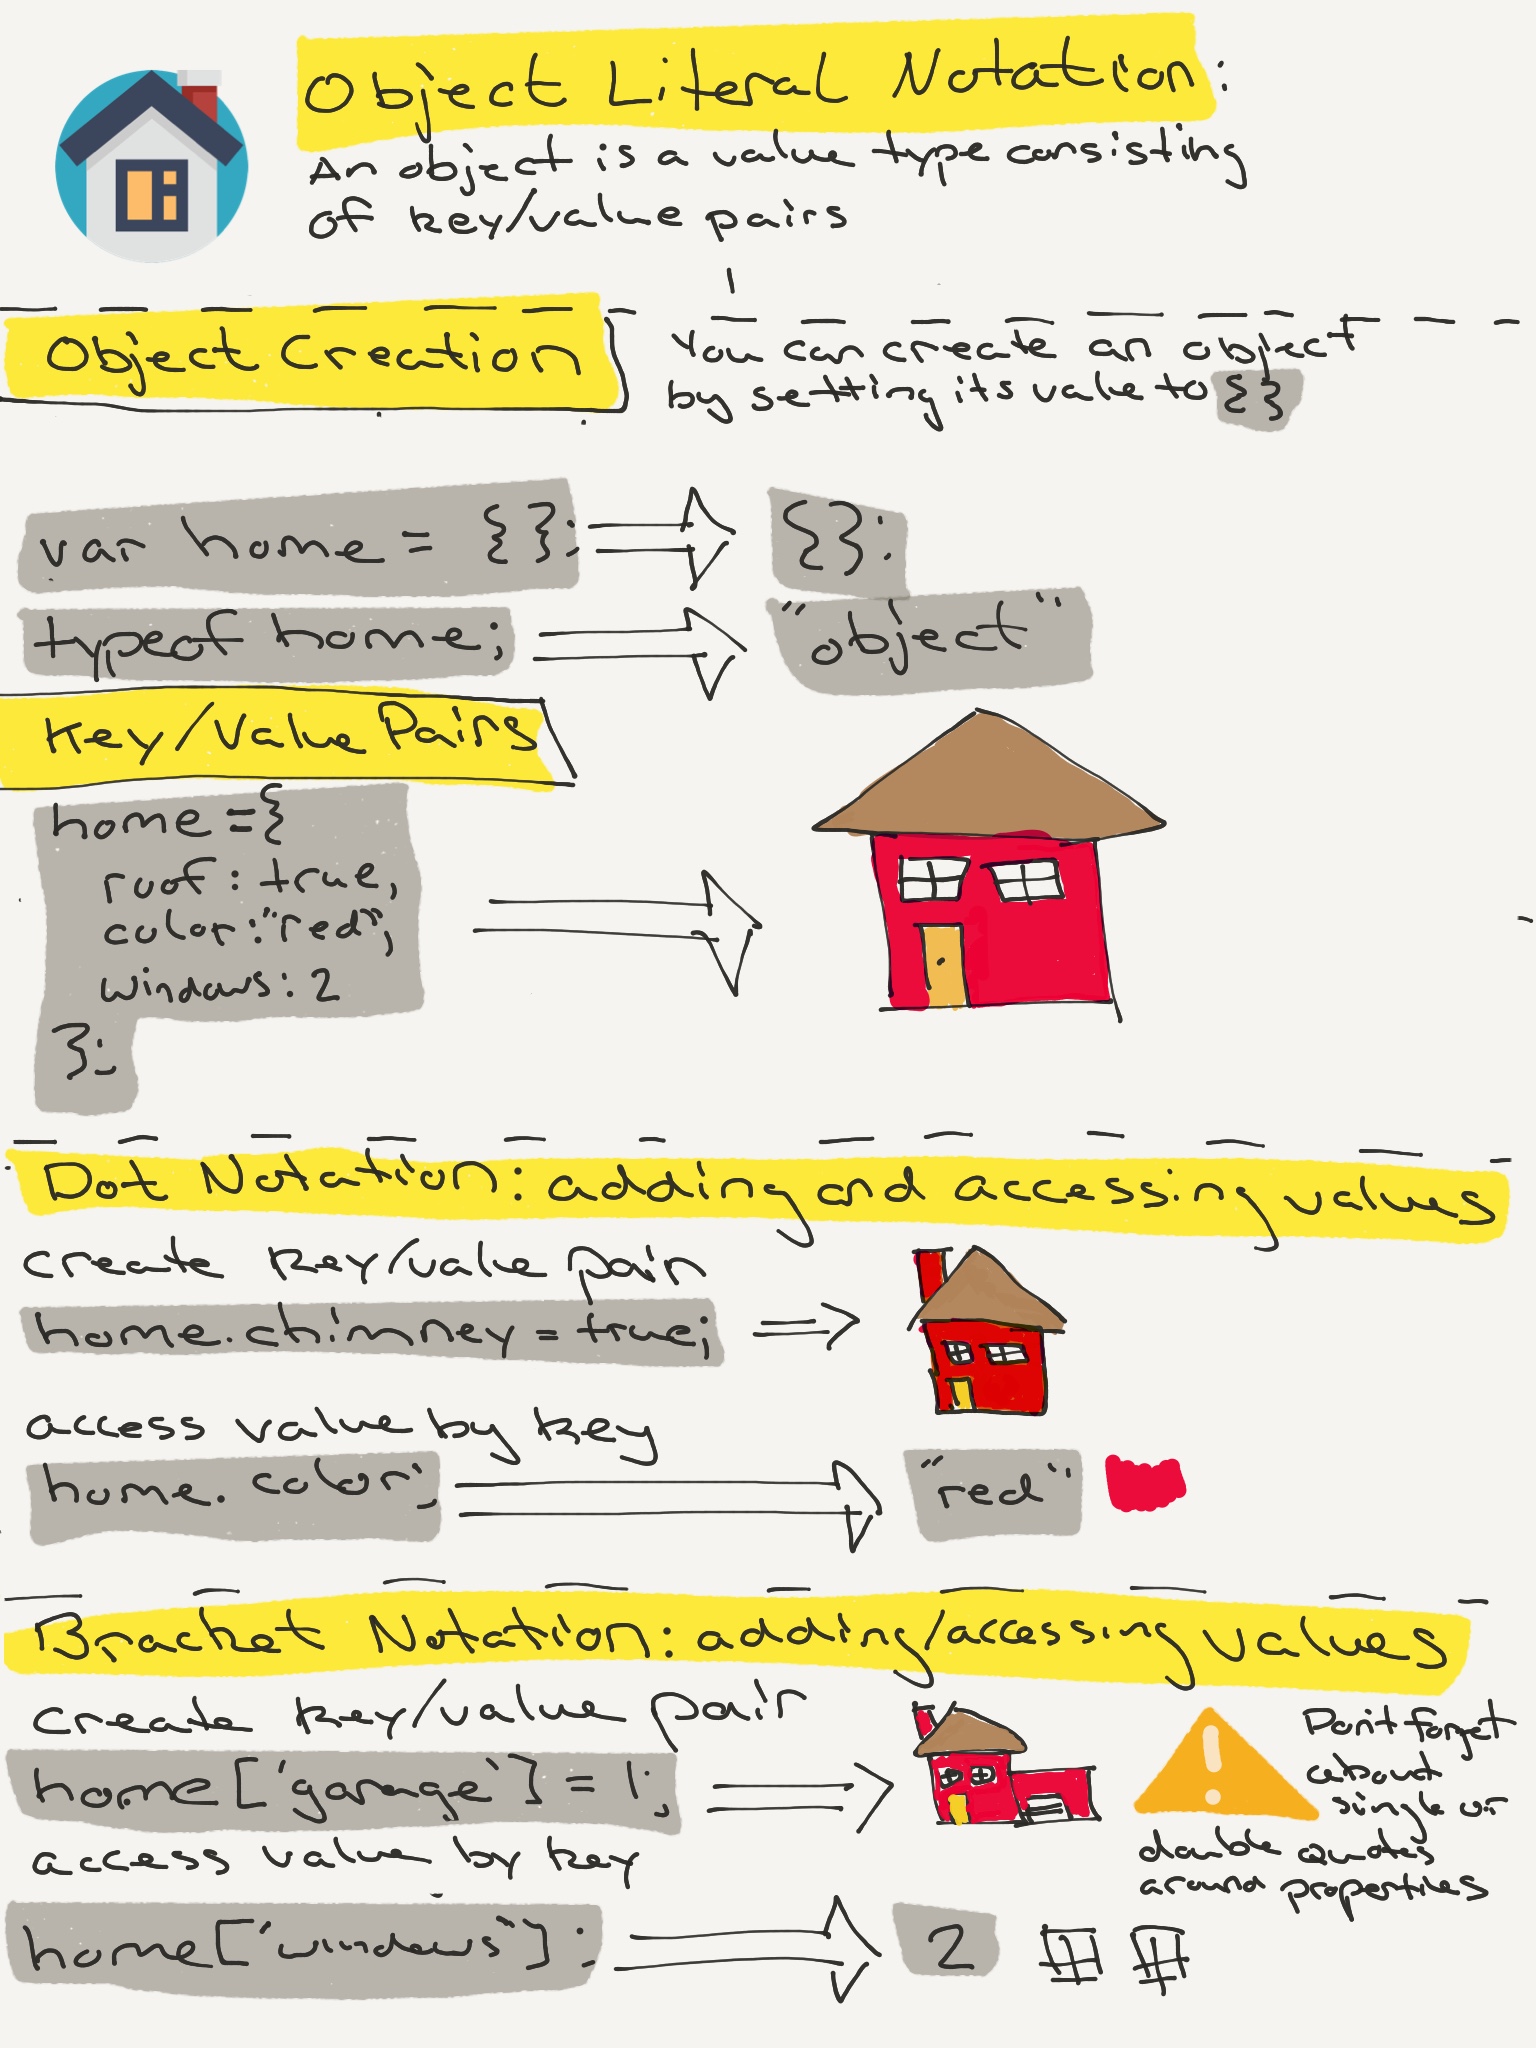 Object Literal Notation:
An object is a value type consisting
of key/value pairs
Object Creation
You can create an object
by setting its value to {}
var home = {};
{};
typeof home;
"object"
Key/Value Pairs
home ={
roof: true,
color:"red",
windows: 2
};
Dot Notation: adding and accessing values
create key/value pair
home.chimney = true;
access value by key
home.color;
"red"
Bracket Notation: adding/accessing values
create key/value pair
home['garage'] = 1;
Don't forget
about
single or
double quotes
around properties
access value by key
home['windows'];
2